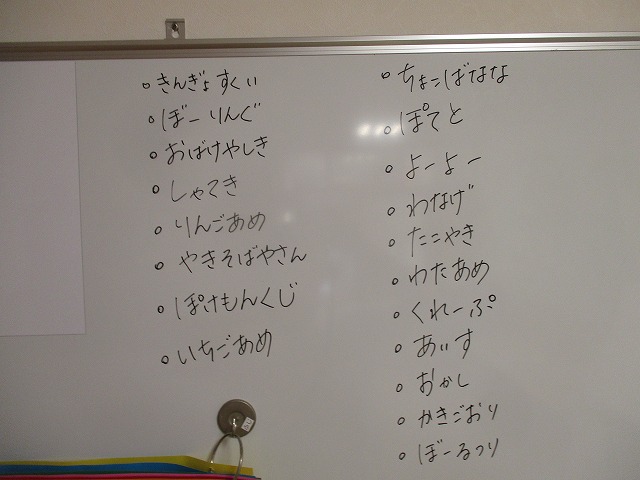 ○きんぎょすくい
○ぼーりんぐ
○おばけやしき
○しゃてき
○りんごあめ
○やきそばやさん
○ぽけもんくじ
○いちごあめ
○ちょこばなな
○ぽてと
○よーよー
○わなげ
○たこやき
○わたあめ
○くれーぷ
○あいす
○おかし
○かきごおり
○ぼーるつり